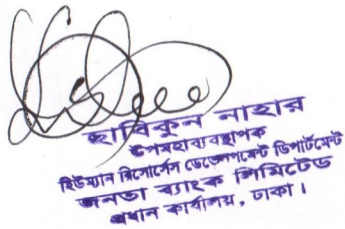 হাবিকুন নাহার
উপমহাব্যবস্থাপক
হিউম্যান রিসোর্সেস ডেভেলপমেন্ট ডিপার্টমেন্ট
জনতা ব্যাংক লিমিটেড
প্রধান কার্যালয়, ঢাকা।